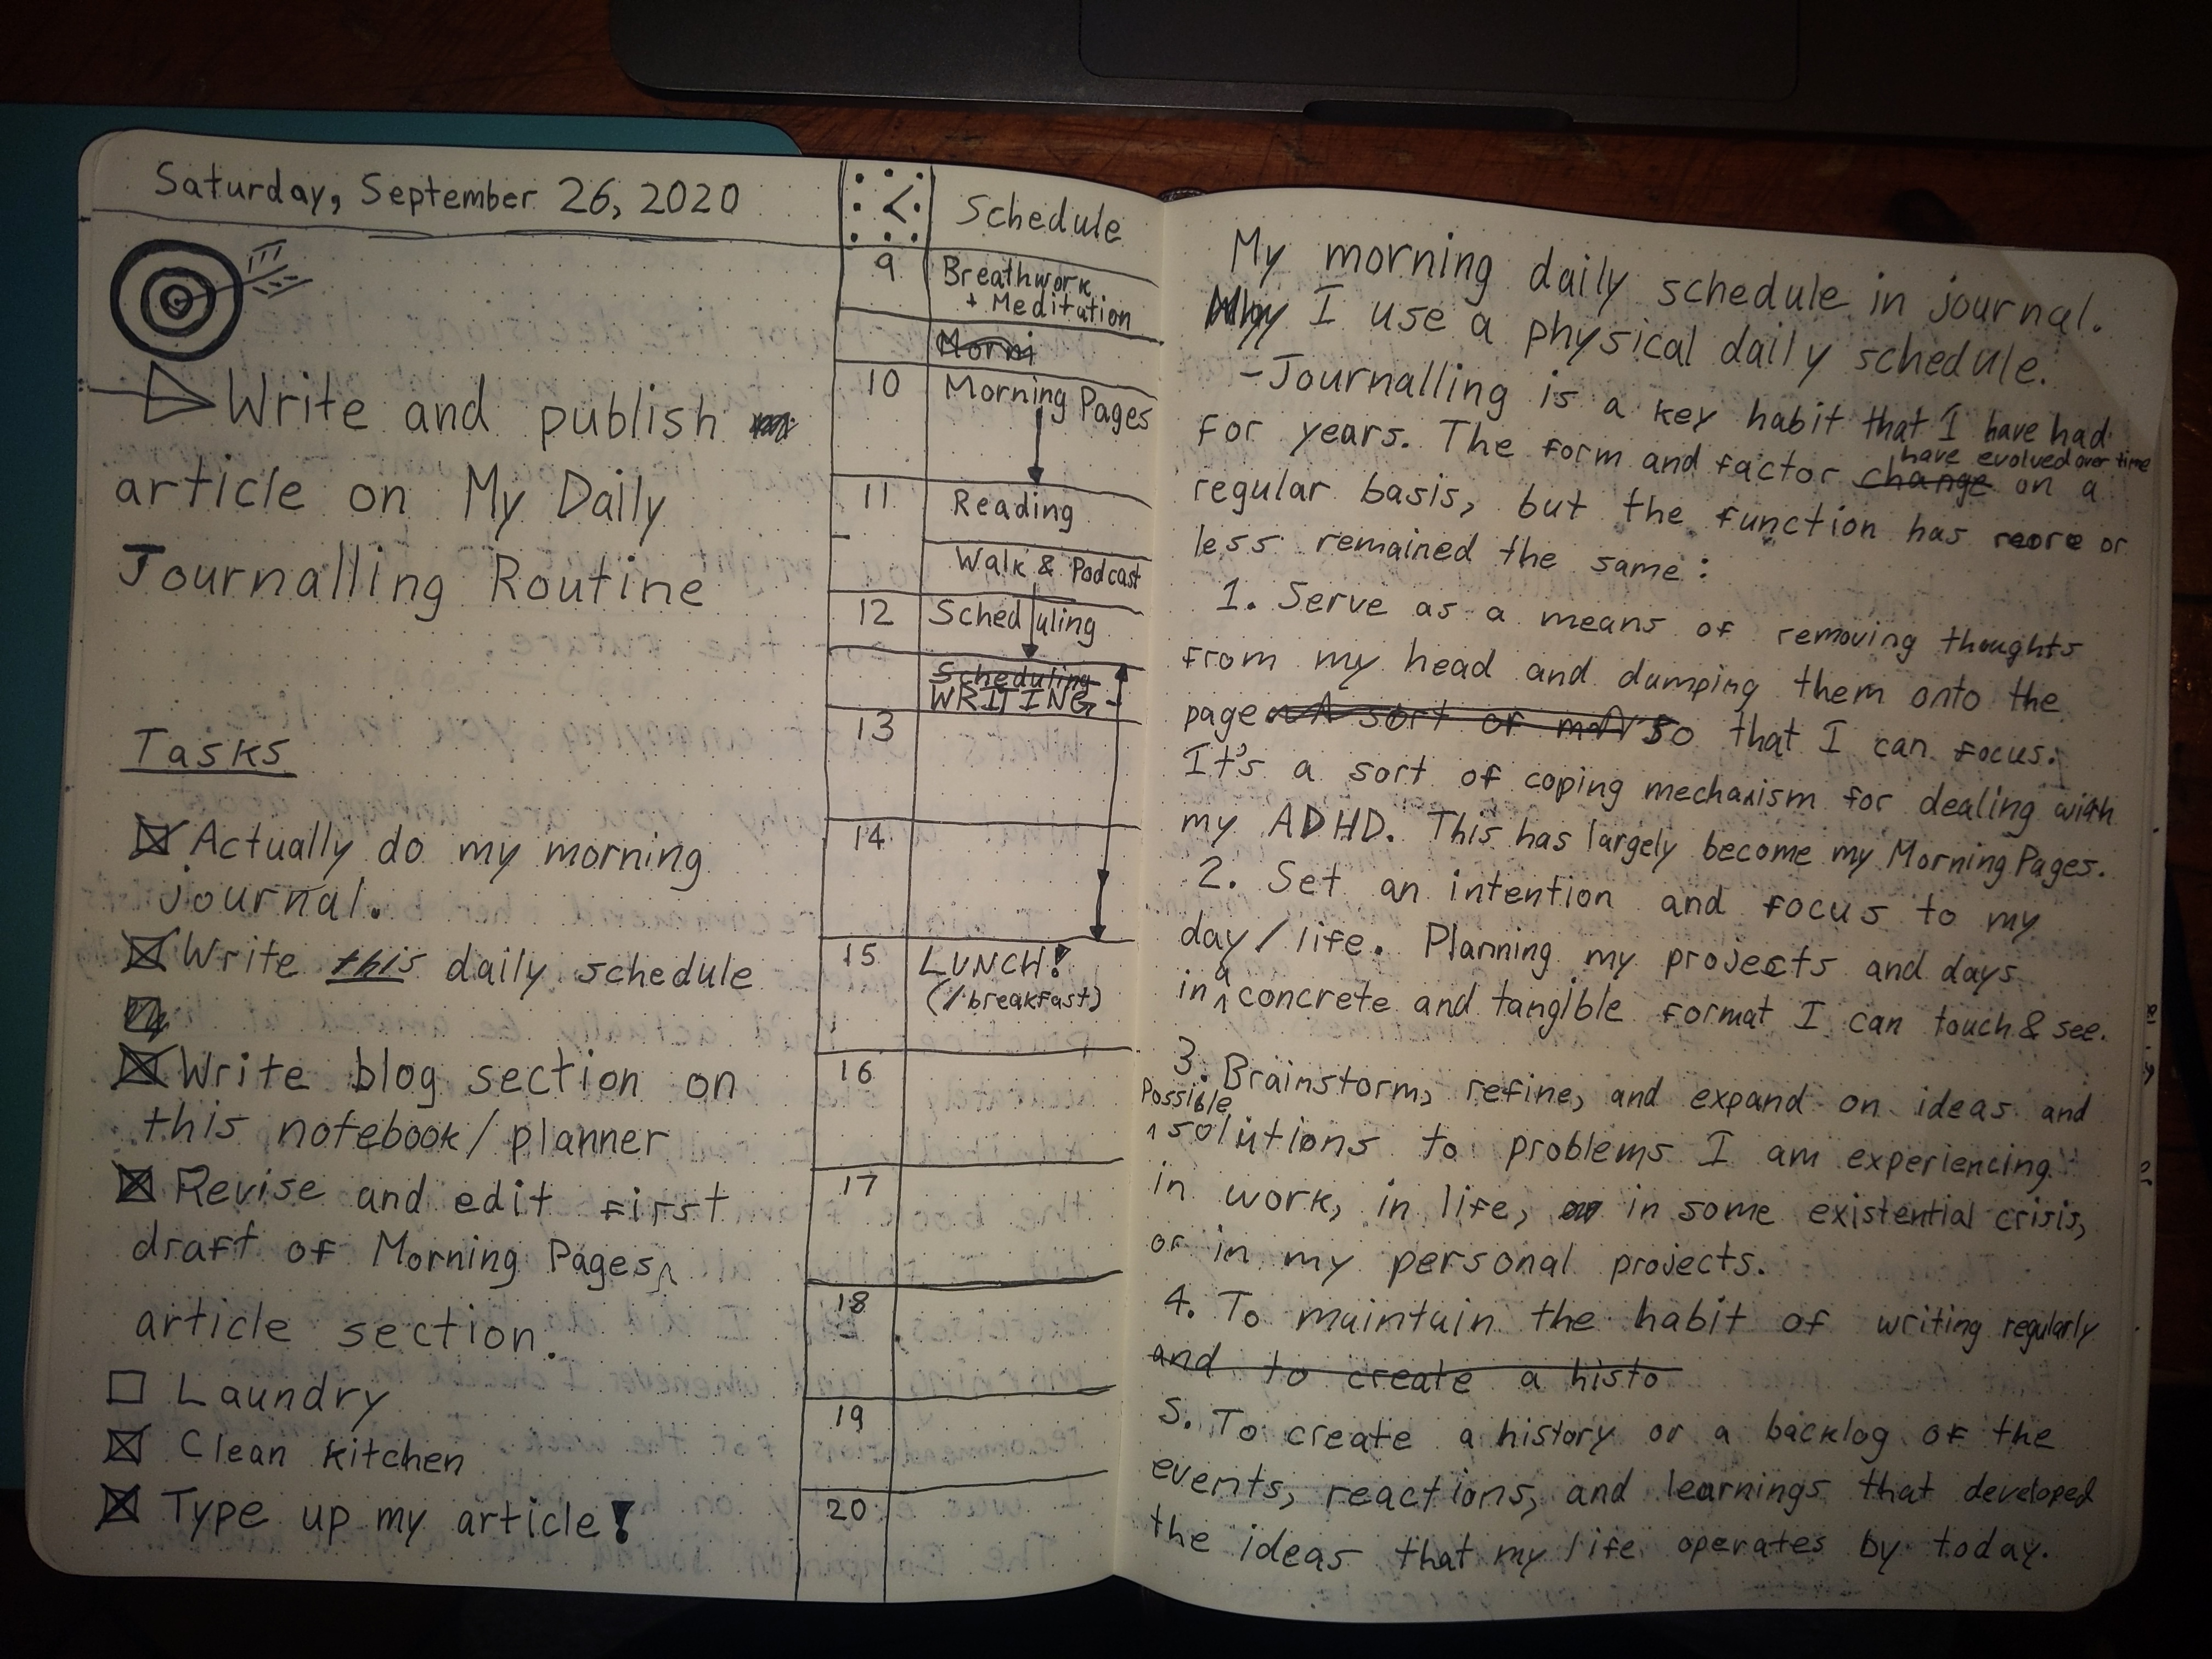 Saturday, September 26, 2020
Write and publish
article on My Daily
Journalling Routine
Tasks
Actually do my morning
journal.
Write this daily schedule
Write blog section on
this notebook/planner
Revise and edit first
draft of Morning Pages
article section.
Laundry
Clean kitchen
Type up my article!
Schedule
9 Breathwork
+ Meditation
Morni
10 Morning Pages
11 Reading
Walk & Podcast
12 Scheduling
Scheduling
WRITING
13
14
15 LUNCH!
(/breakfast)
16
17
18
19
20
My morning daily schedule in journal.
Why I use a physical daily schedule.
-Journalling is a key habit that I have had
for years. The form and factor change have evolved over time on a
regular basis, but the function has more or
less remained the same:
1. Serve as a means of removing thoughts
from my head and dumping them onto the
page A sort of so that I can focus.
It's a sort of coping mechanism for dealing with
my ADHD. This has largely become my Morning Pages.
2. Set an intention and focus to my
day/life. Planning my projects and days
in a concrete and tangible format I can touch & see.
3. Brainstorm, refine, and expand on ideas and
possible solutions to problems I am experiencing
in work, in life, or in some existential crisis,
or in my personal projects.
4. To maintain the habit of writing regularly
and to create a histo
5. To create a history or a backlog of the
events, reactions, and learnings that developed
the ideas that my life operates by today.